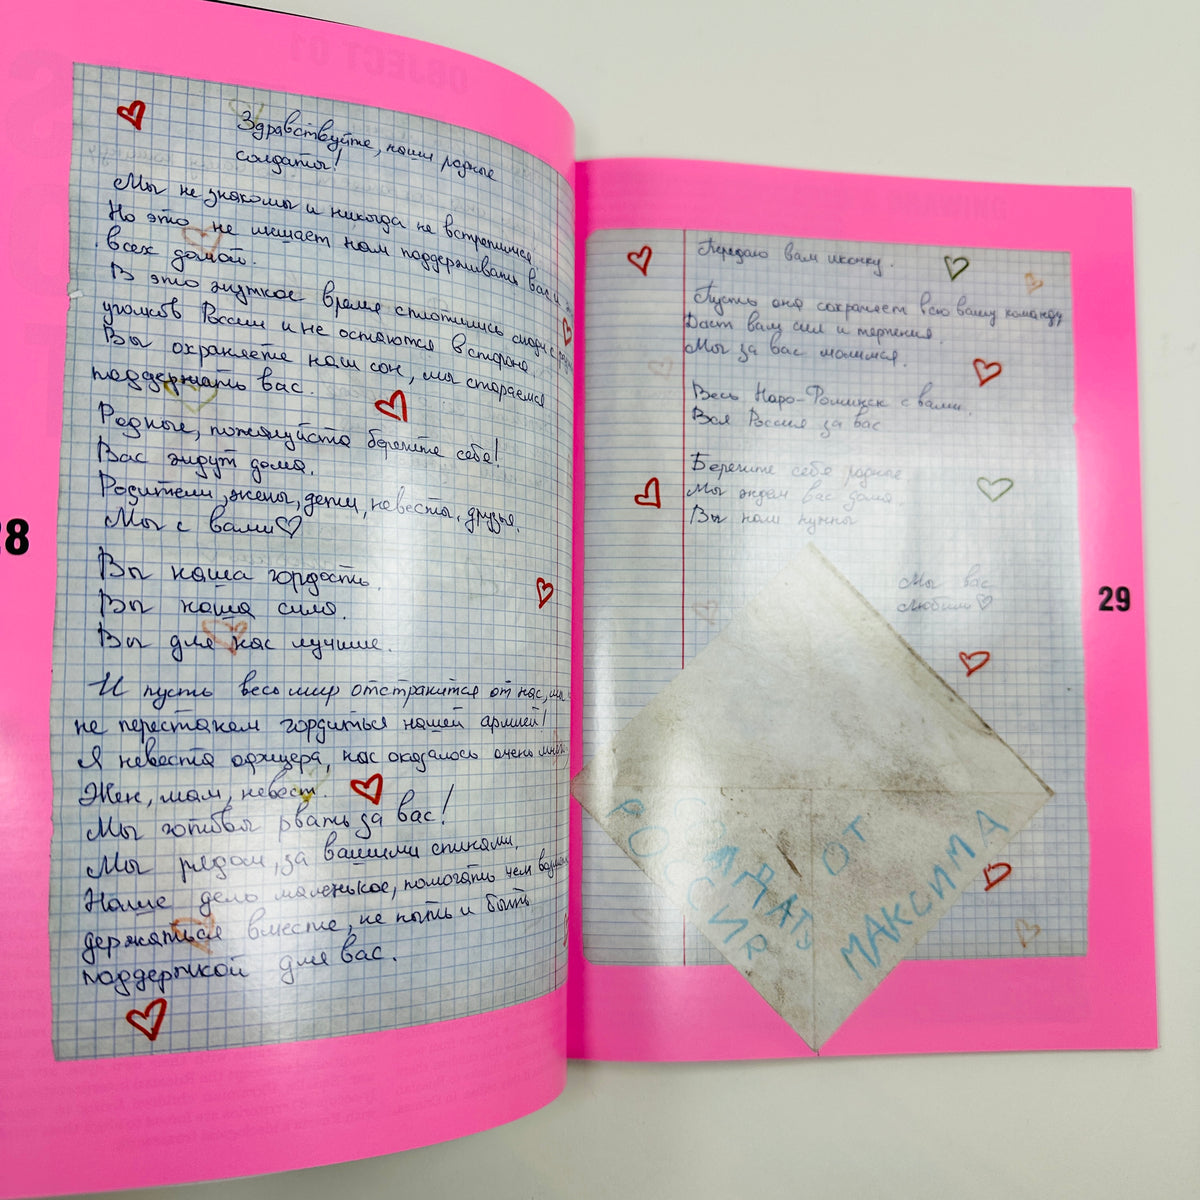 Здравствуйте, наши родные
солдаты!
Мы не знакомы и никогда не встретимся
Но это не мешает нам поддерживать вас и
всех домой.
В это жуткое время сплотились люди с
уголков России и не остаются в стороне.
Вы охраняете наш сон, мы стараемся
поддержать вас.
Родные, пожалуйста берегите себя!
Вас ждут дома.
Родители, жены, дети, невесты, друзья.
Мы с вами♡
Вы наша гордость.
Вы наша сила.
Вы для нас лучшие.
И пусть весь мир отстранится от нас, мы
не перестанем гордиться нашей армией!
Я невеста офицера, нас оказалось очень много
Жен, мам, невест.
Мы готовы рвать за вас!
Мы рядом, за вашими спинами.
Наше дело маленькое, помогать чем
держаться вместе, не ныть и быть
поддержкой для вас.
28
Передаю вам иконку.
Пусть она сохраняет всю вашу команду
Даст вам сил и терпения.
Мы за вас молимся.
Весь Наро-Фоминск с вами.
Вся Россия за вас
Берегите себя родные
Мы ждем вас дома.
Вы нам нужны
Мы вас
любим♡
СОЛДАТУ
РОССИЯ
ОТ
МАКСИМА
29
OBJECT 01